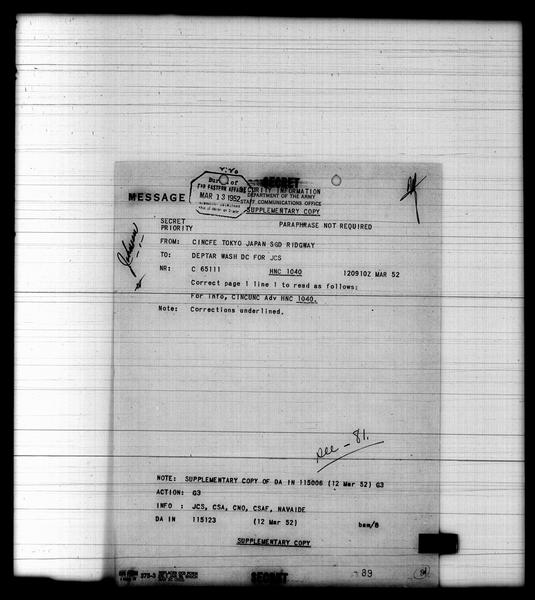 SECRET
Bur of
FAR EASTERN AFFAIRS
MAR 13 1952
SECURITY INFORMATION
DEPARTMENT OF THE ARMY
STAFF COMMUNICATIONS OFFICE
MESSAGE
SUPPLEMENTARY COPY
SECRET
PRIORITY
PARAPHRASE NOT REQUIRED
FROM: CINCFE TOKYO JAPAN SGD RIDGWAY
TO: DEPTAR WASH DC FOR JCS
NR: C 65111 HNC 1040 120910Z MAR 52
Correct page 1 line 1 to read as follows:
For info, CINCUNC Adv HNC 1040.
Note: Corrections underlined.
see - 81.
NOTE: SUPPLEMENTARY COPY OF DA IN 115006 (12 Mar 52) G3
ACTION: G3
INFO : JCS, CSA, CNO, CSAF, NAVAIDE
DA IN 115123 (12 Mar 52) bsm/8
SUPPLEMENTARY COPY
375-3
SECRET
89